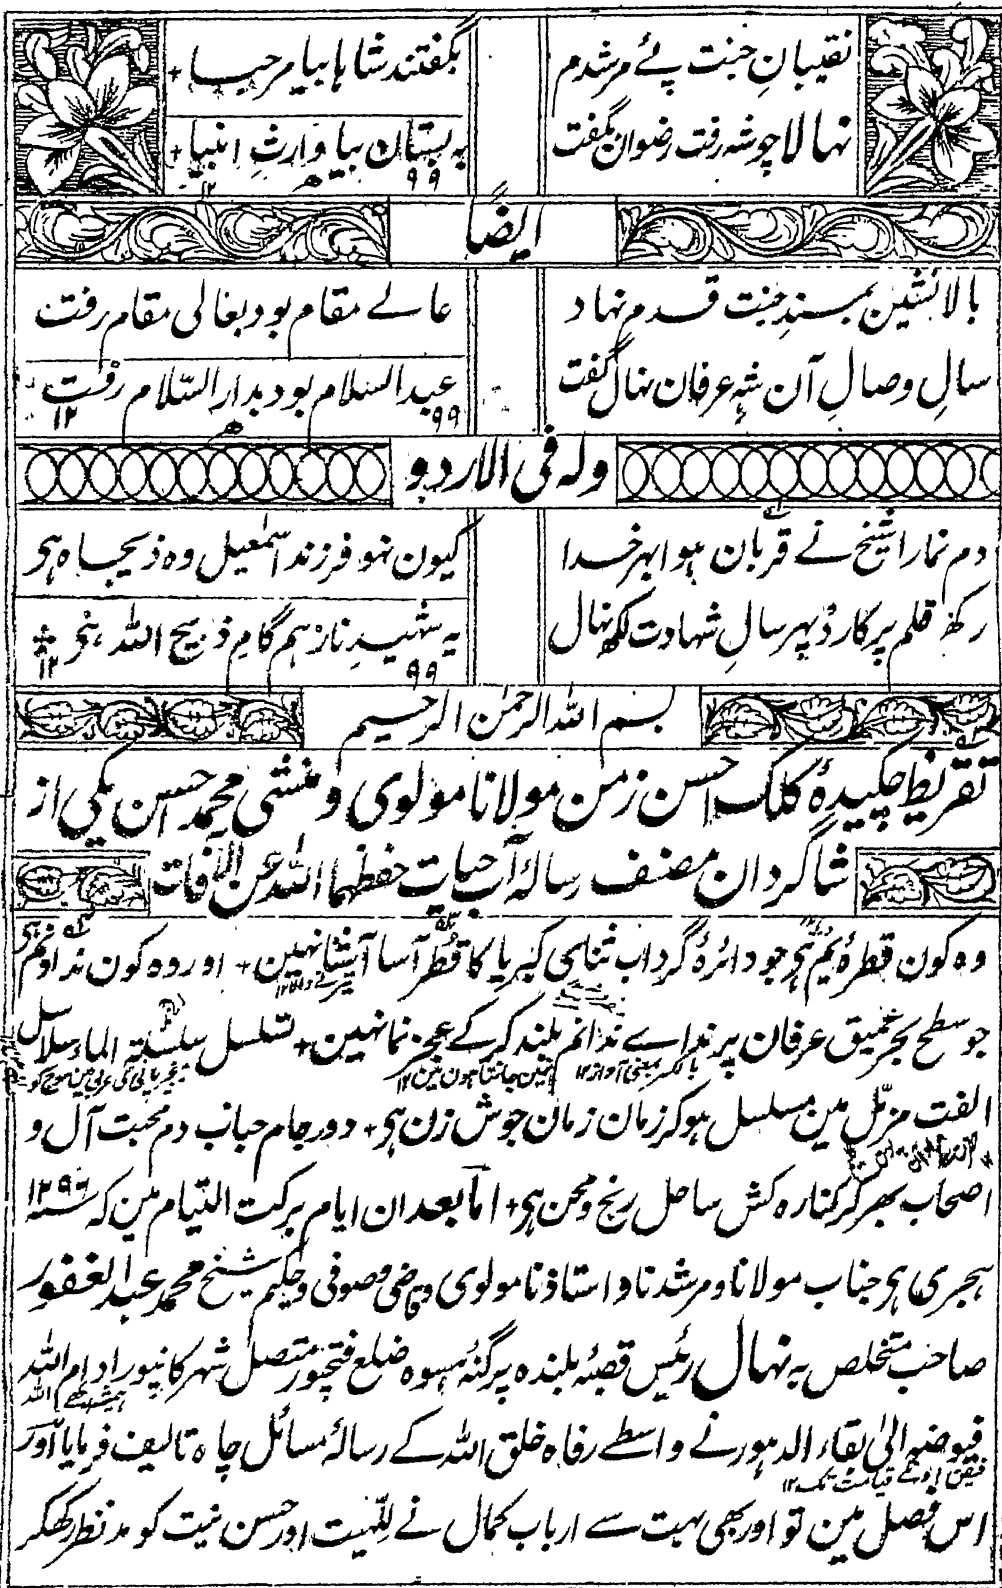 نقیبانِ جنت پئے مرشدم
بگفتند شاہا بیا مرحبا +
نہالا چو شہ رفت رضوان بگفت
بہ بستان بیا وارثِ انبیا +
۱۲ ھ ۹۹
ایضًا
بالانشین بمسندِ جنت قدم نہاد
عالے مقام بود بعالی مقام رفت
سالِ وصالِ آن شہِ عرفان نہال گفت
عبدالسلام بود بدار السّلام رفت
۱۲ ھ ۹۹
وله فی الاردو
دم نمارا شیخ نے قربان ہوا بہر خدا
کیون نہو فرزند اسمٰعیل وہ ذیجاہ ہی
رکھ قلم پر کارد بہر سالِ شہادت لکھ نہال
یہ شہیدِ ناز ہم گامِ ذبیح اللہ ہی
۱۲ ۹۹
بسم اللہ الرحمٰن الرحیم
تقریظ چکیدۂ کلک احسن زمن مولانا مولوی و منشی محمد حسن یکی از
شاگردان مصنف رسالہ آب حیات حفظہما اللہ عن الآفات
وہ کون قطرۂ یم ہی جو دائرۂ گرداب ثنای کبریا کا قُطر آسا آشنا نہین + اور وہ کون ندا و نم ہی
تیرنے والا ۱۲
جو سطح بحر عمیق عرفان پر نداے ندانم بلند کر کے عجز نما نہین + تسلسل سلسلۃ الماء سلاسل
بالکسر بمعنی آواز ۱۲ نہین جانتا ہون مین ۱۲
الفت مزمّل مین مسلسل ہو کر زمان زمان جوش زن ہی + دور جام حباب دم محبت آل و
اصحاب بھر کر کنارہ کش ساحل رنج و محن ہی + امّا بعد ان ایام برکت التیام مین کہ سنہ ۱۲۹۶
ہجری ہی جناب مولانا و مرشدنا و استاذنا مولوی و قاضی و صوفی و حکیم شیخ محمد عبد الغفور
صاحب متخلص بہ نہال رئیس قصبہ بلندہ پرگنۂ ہسوہ ضلع فتحپور متصل شہر کانپور ادام اللہ
ہمیشہ رکھے اللہ
فیوضہ الیٰ بقاء الدہور نے واسطے رفاہ خلق اللہ کے رسالہ مسائل چاہ تالیف فرمایا اور
فیض اونکے قیامت تک ۱۲
اس فصل مین تو اور بھی بہت سے ارباب کمال نے للّٰہیت اور حسن نیت کو مد نظر رکھکر